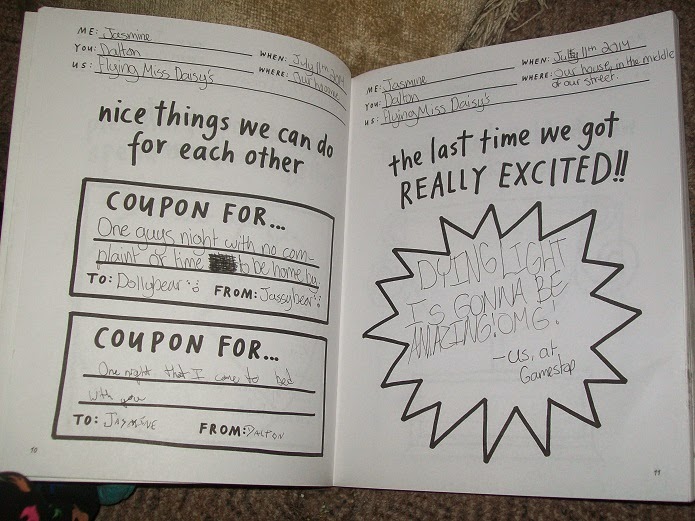 ME: Jasmine
YOU: Dalton
US: Flying Miss Daisy's
WHEN: July 11th 2014
WHERE: Our house
nice things we can do
for each other
COUPON FOR...
One guys night with no com-
plaint or time to be home by.
TO: Dollybear
FROM: Jassybear
COUPON FOR...
One night that I come to bed
with you
TO: JASMINE
FROM: DALTON
10
ME: Jasmine
YOU: Dalton
US: Flying Miss Daisy's
WHEN: July 11th 2014
WHERE: Our house, in the middle
of our street.
the last time we got
REALLY EXCITED!!
DYING LIGHT
IS GONNA BE
AMAZING! OMG!
-us, at
Gamestop
11